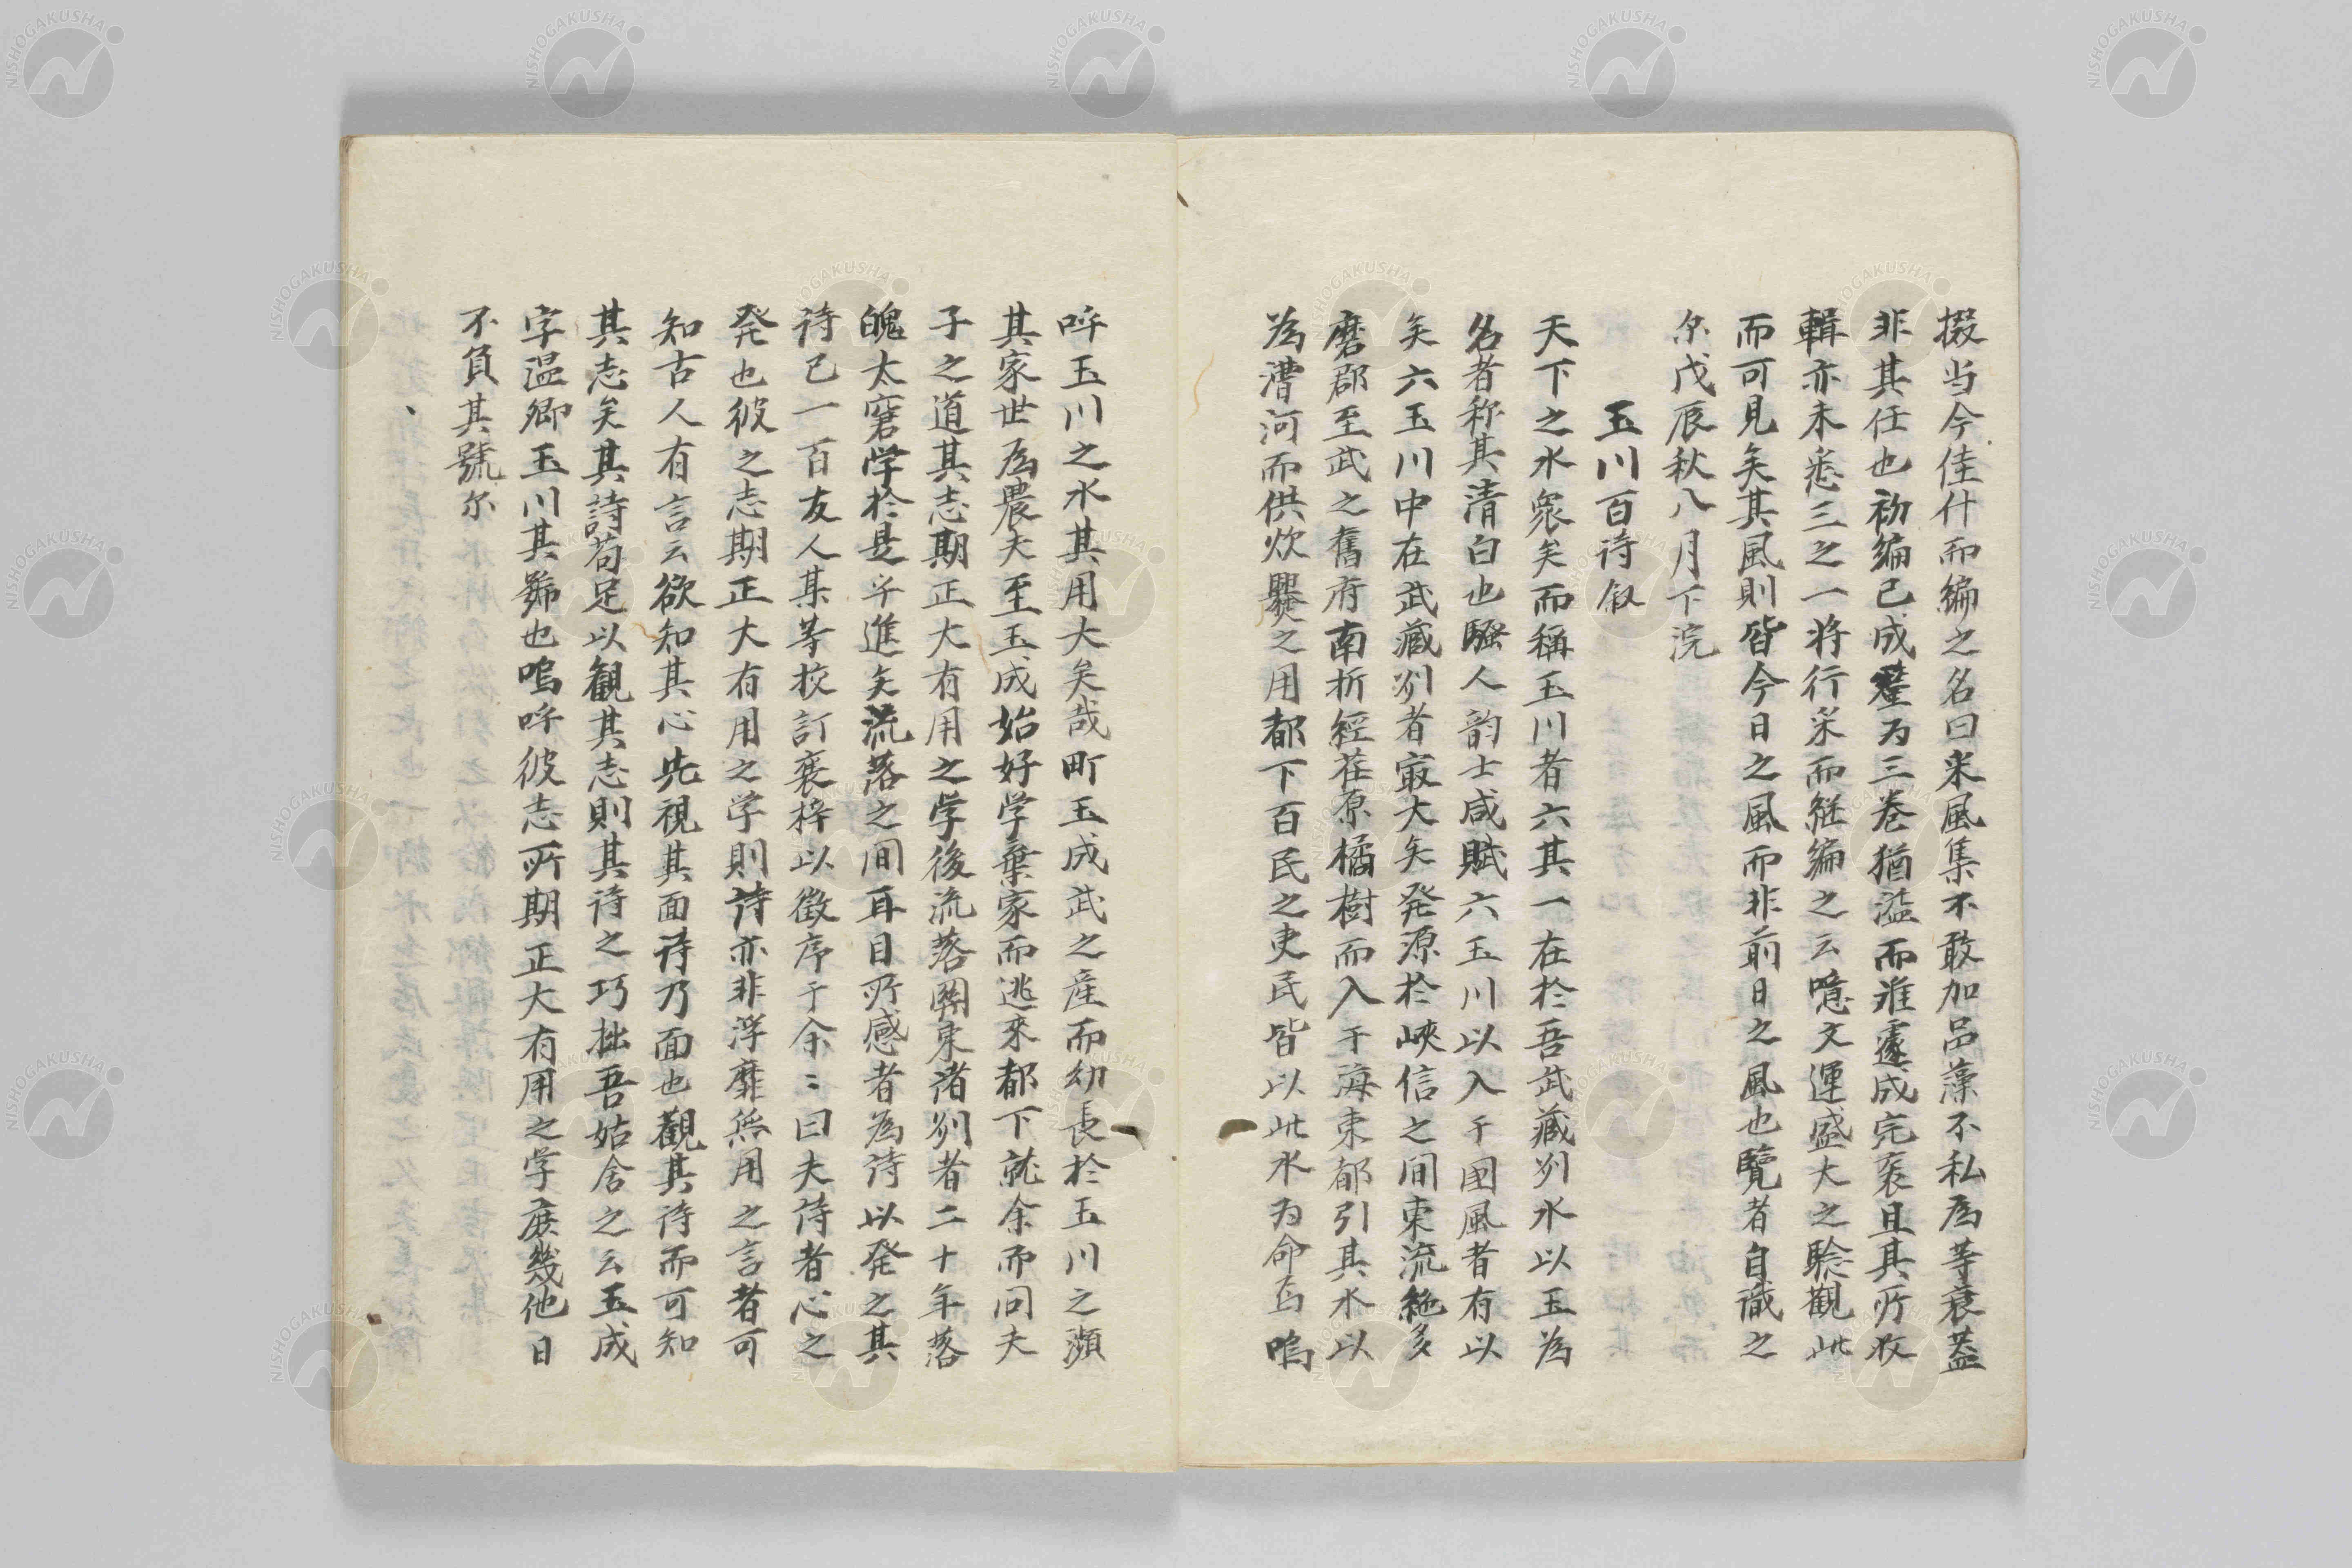 掇当今佳什而編之名曰采風集不敢加品藻不私為等衰蓋
非其任也初編已成釐为三巻猶滥而难遽成完袠且其所收
輯亦未悉三之一将行采而継編之云噫文運盛大之聡觀此
而可見矣其風則皆今日之風而非前日之風也覽者自識之
尔戊辰秋八月下浣
玉川百詩叙
天下之水衆矣而稱玉川者六其一在於吾武藏州水以玉為
名者称其清白也騷人韵士咸賦六玉川以入于國風者有以
矣六玉川中在武藏州者㝡大矣発源於峽信之間東流絶多
磨郡至武之舊府南折經荏原橘樹而入于海東都引其水以
為漕河而供炊爨之用都下百民之吏民皆以此水为命焉嗚
呼玉川之水其用大矣哉町玉成武之産而幼長於玉川之瀕
其家世為農夫至玉成始好学棄家而逃來都下就余而问夫
子之道其志期正大有用之学後流落関東诸州者二十年落
魄太窘学於是乎進矣流落之间耳目所感者為诗以発之其
诗已一百友人某等校訂褎梓以徴序于余〻曰夫诗者心之
発也彼之志期正大有用之学則詩亦非浮靡無用之言者可
知古人有言云欲知其心先視其面诗乃面也觀其诗而可知
其志矣其詩苟足以観其志則其诗之巧拙吾姑舍之云玉成
字温卿玉川其號也嗚呼彼志所期正大有用之学庶幾他日
不負其號尔